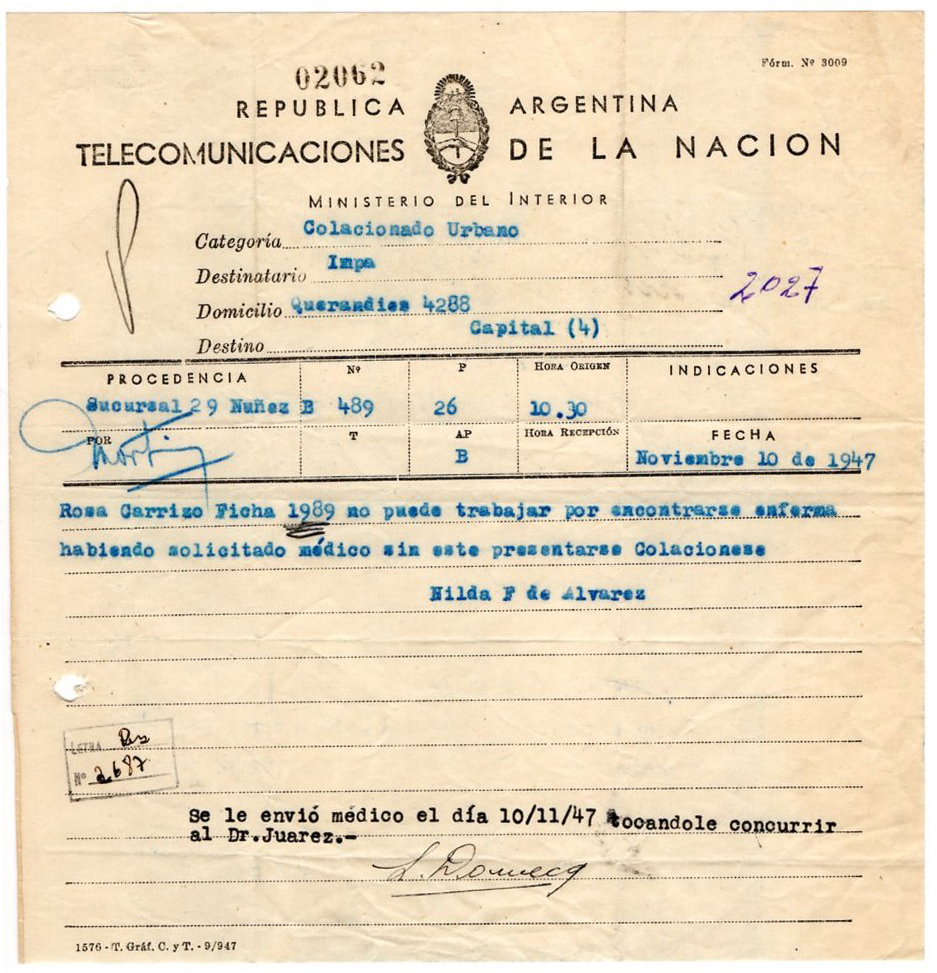 Fórm. Nº 3009
02062
REPUBLICA ARGENTINA
TELECOMUNICACIONES DE LA NACION
MINISTERIO DEL INTERIOR
Categoría Colacionado Urbano
Destinatario Impa
Domicilio Querandies 4288
2027
Destino Capital (4)
PROCEDENCIA Nº P HORA ORIGEN INDICACIONES
Sucursal 29 Nuñez B 489 26 10.30
POR T AP HORA RECEPCIÓN FECHA
B Noviembre 10 de 1947
Rosa Carrizo Ficha 1989 no puede trabajar por encontrarse enferma
habiendo solicitado médico sin este presentarse Colacionese
Nilda F de Alvarez
LETRA
Nº 2687
Se le envió médico el día 10/11/47 tocandole concurrir
al Dr.Juarez.-
L. Domecq
1576 - T. Gráf. C. y T. - 9/947